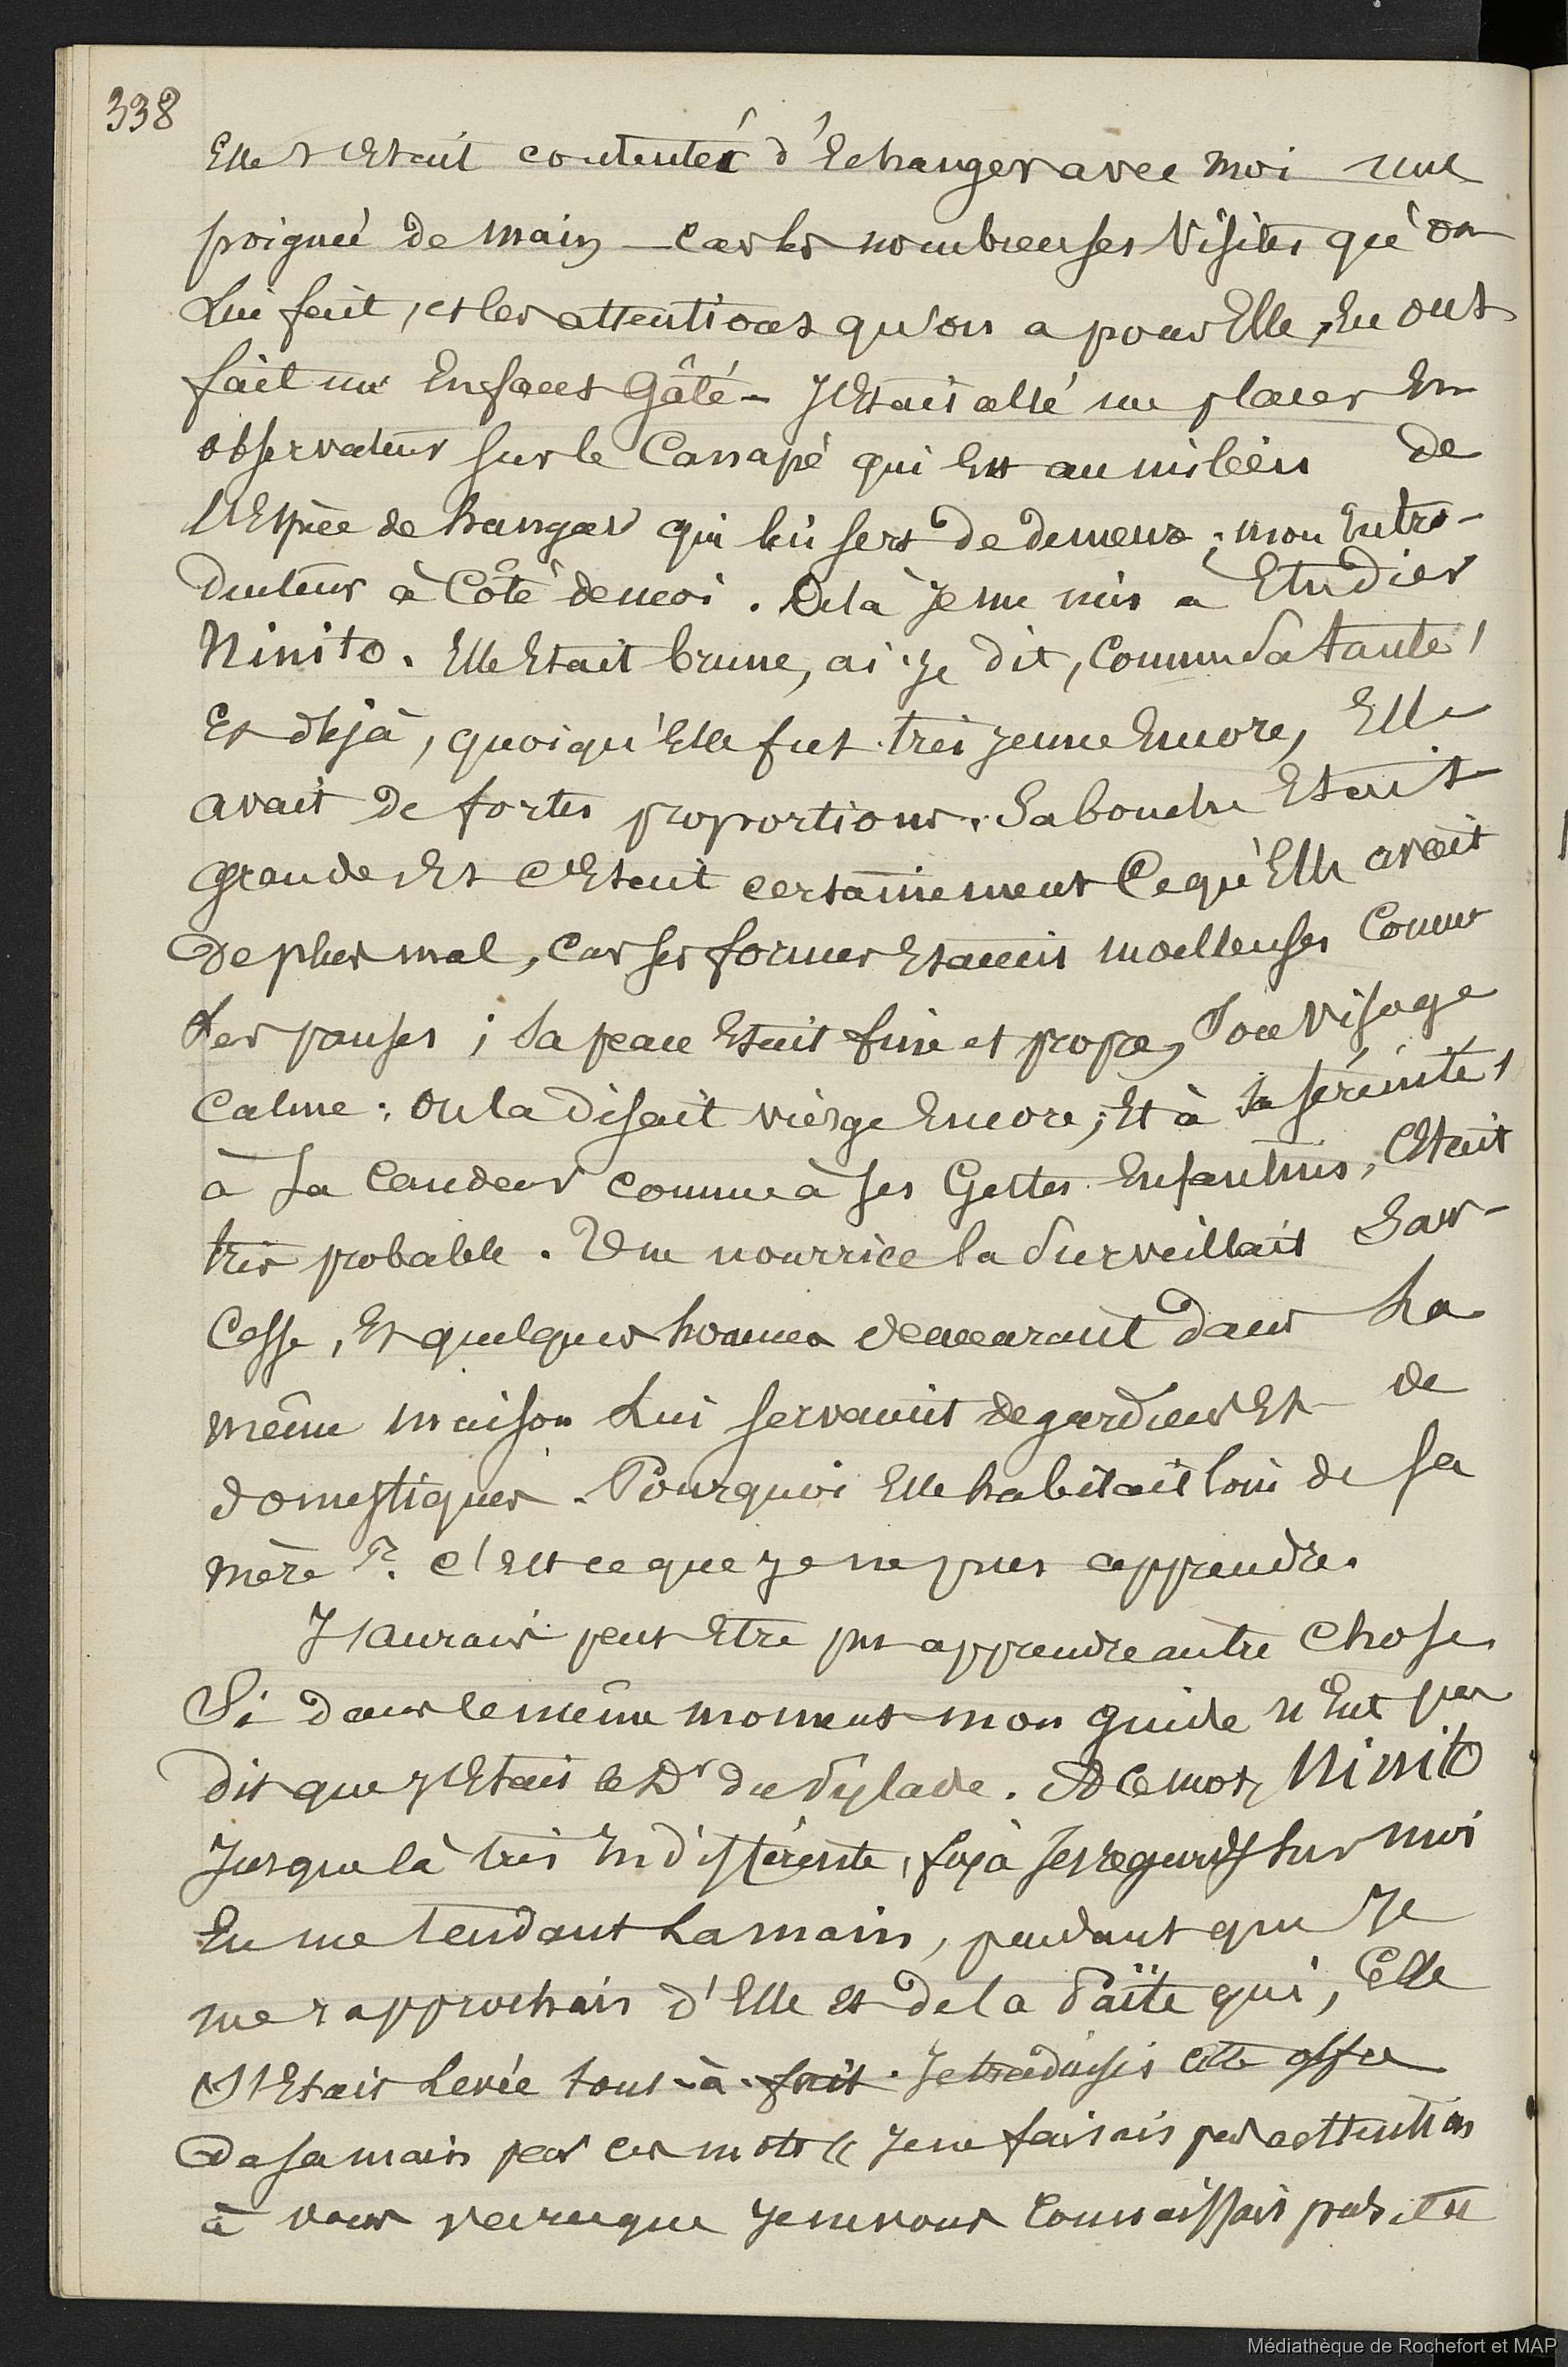 338
Elle s'Etait contentée d'Echanger avec moi une
poignée de main – car les nombreuses Visites qu'on
Lui fait, et les attentions qu'on a pour Elle, En ont
fait un Enfant Gâté – J'Etais allé me placer En
observateur sur le Canapé qui Est au milieu de
l'Espèce de hangar qui lui sert de demeure ; mon Intro-
ducteur à Côté de moi. De là Je me mis à Etudier
Ninito. Elle Etait brune, ai-je dit, Comme Sa tante,
Et déjà, quoiqu'Elle fut très jeune Encore, Elle
avait de fortes proportions. Sa bouche Etait
grande Et c'Etait certainement Ce qu'Elle avait
De plus mal, Car ses formes Etaient moelleuses Comme
Les ; Sa peau Etait fine et propre, Son Visage
Calme : On la disait vièrge Encore, Et à sa sérénité,
à sa Candeur comme à ses Gestes Enfantins, C'Etait
très probable. Une nourrice la Surveillait San-
Cesse, Et quelques hommes demeurant dans La
même maison Lui servaient de gardiens Et de
domestiques. Pourquoi Elle habitait loin de sa
mère ? c'Est ce que je ne pus apprendre.
J'aurais peut Etre pu apprendre autre Chose
Si dans le même moment mon guide n'Eut pas
dit que j'Etais le Dr du Vylade. A Ce mot, Ninito
Jusque là très Indifférente, fixa ses regards sur moi
En me tendant La main, pendant que Je
me rapprochais d'Elle et de la Païte qui, Elle
S'Etait Levée tout-à-fait. Je traduisis cette offre
De sa main par ces mots « Je ne faisais pas attention
à vous parceque je ne vous Connaissais pas, Et